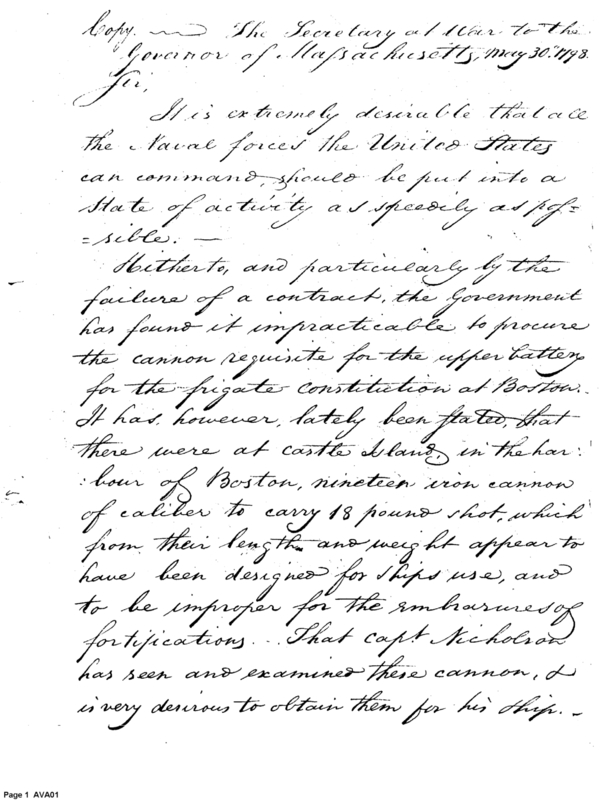 Copy. — The Secretary at War to the
Governor of Massachusetts, May 30th. 1798.
Sir,
It is extremely desirable that all
the Naval forces the United States
can command, should be put into a
State of activity as speedily as pos=
=sible. —
Hitherto, and particularly by the
failure of a contract, the Government
has found it impracticable to procure
the cannon requisite for the upper battery
for the frigate constitution at Boston.
It has, however, lately been stated, that
there were at castle Island, in the har:
:bour of Boston, nineteen iron cannon
of caliber to carry 18 pound shot, which
from their length and weight appear to
have been designed for ships use, and
to be improper for the embrasures of
fortifications... That capt Nicholson
has seen and examined these cannon, &
is very desirous to obtain them for his ship. -
Page 1 AVA01